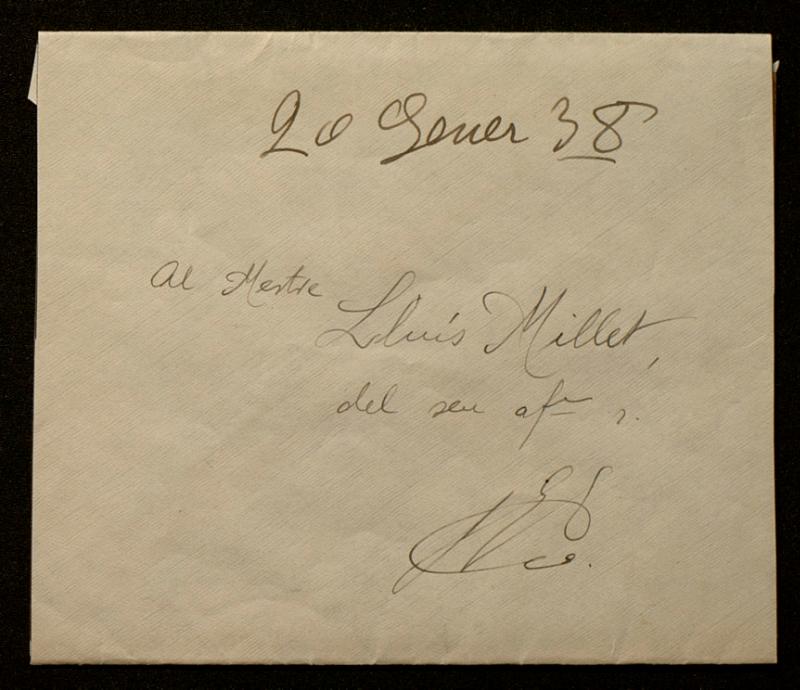 20 Gener 38
Al Mestre
Lluís Millet,
del seu afm